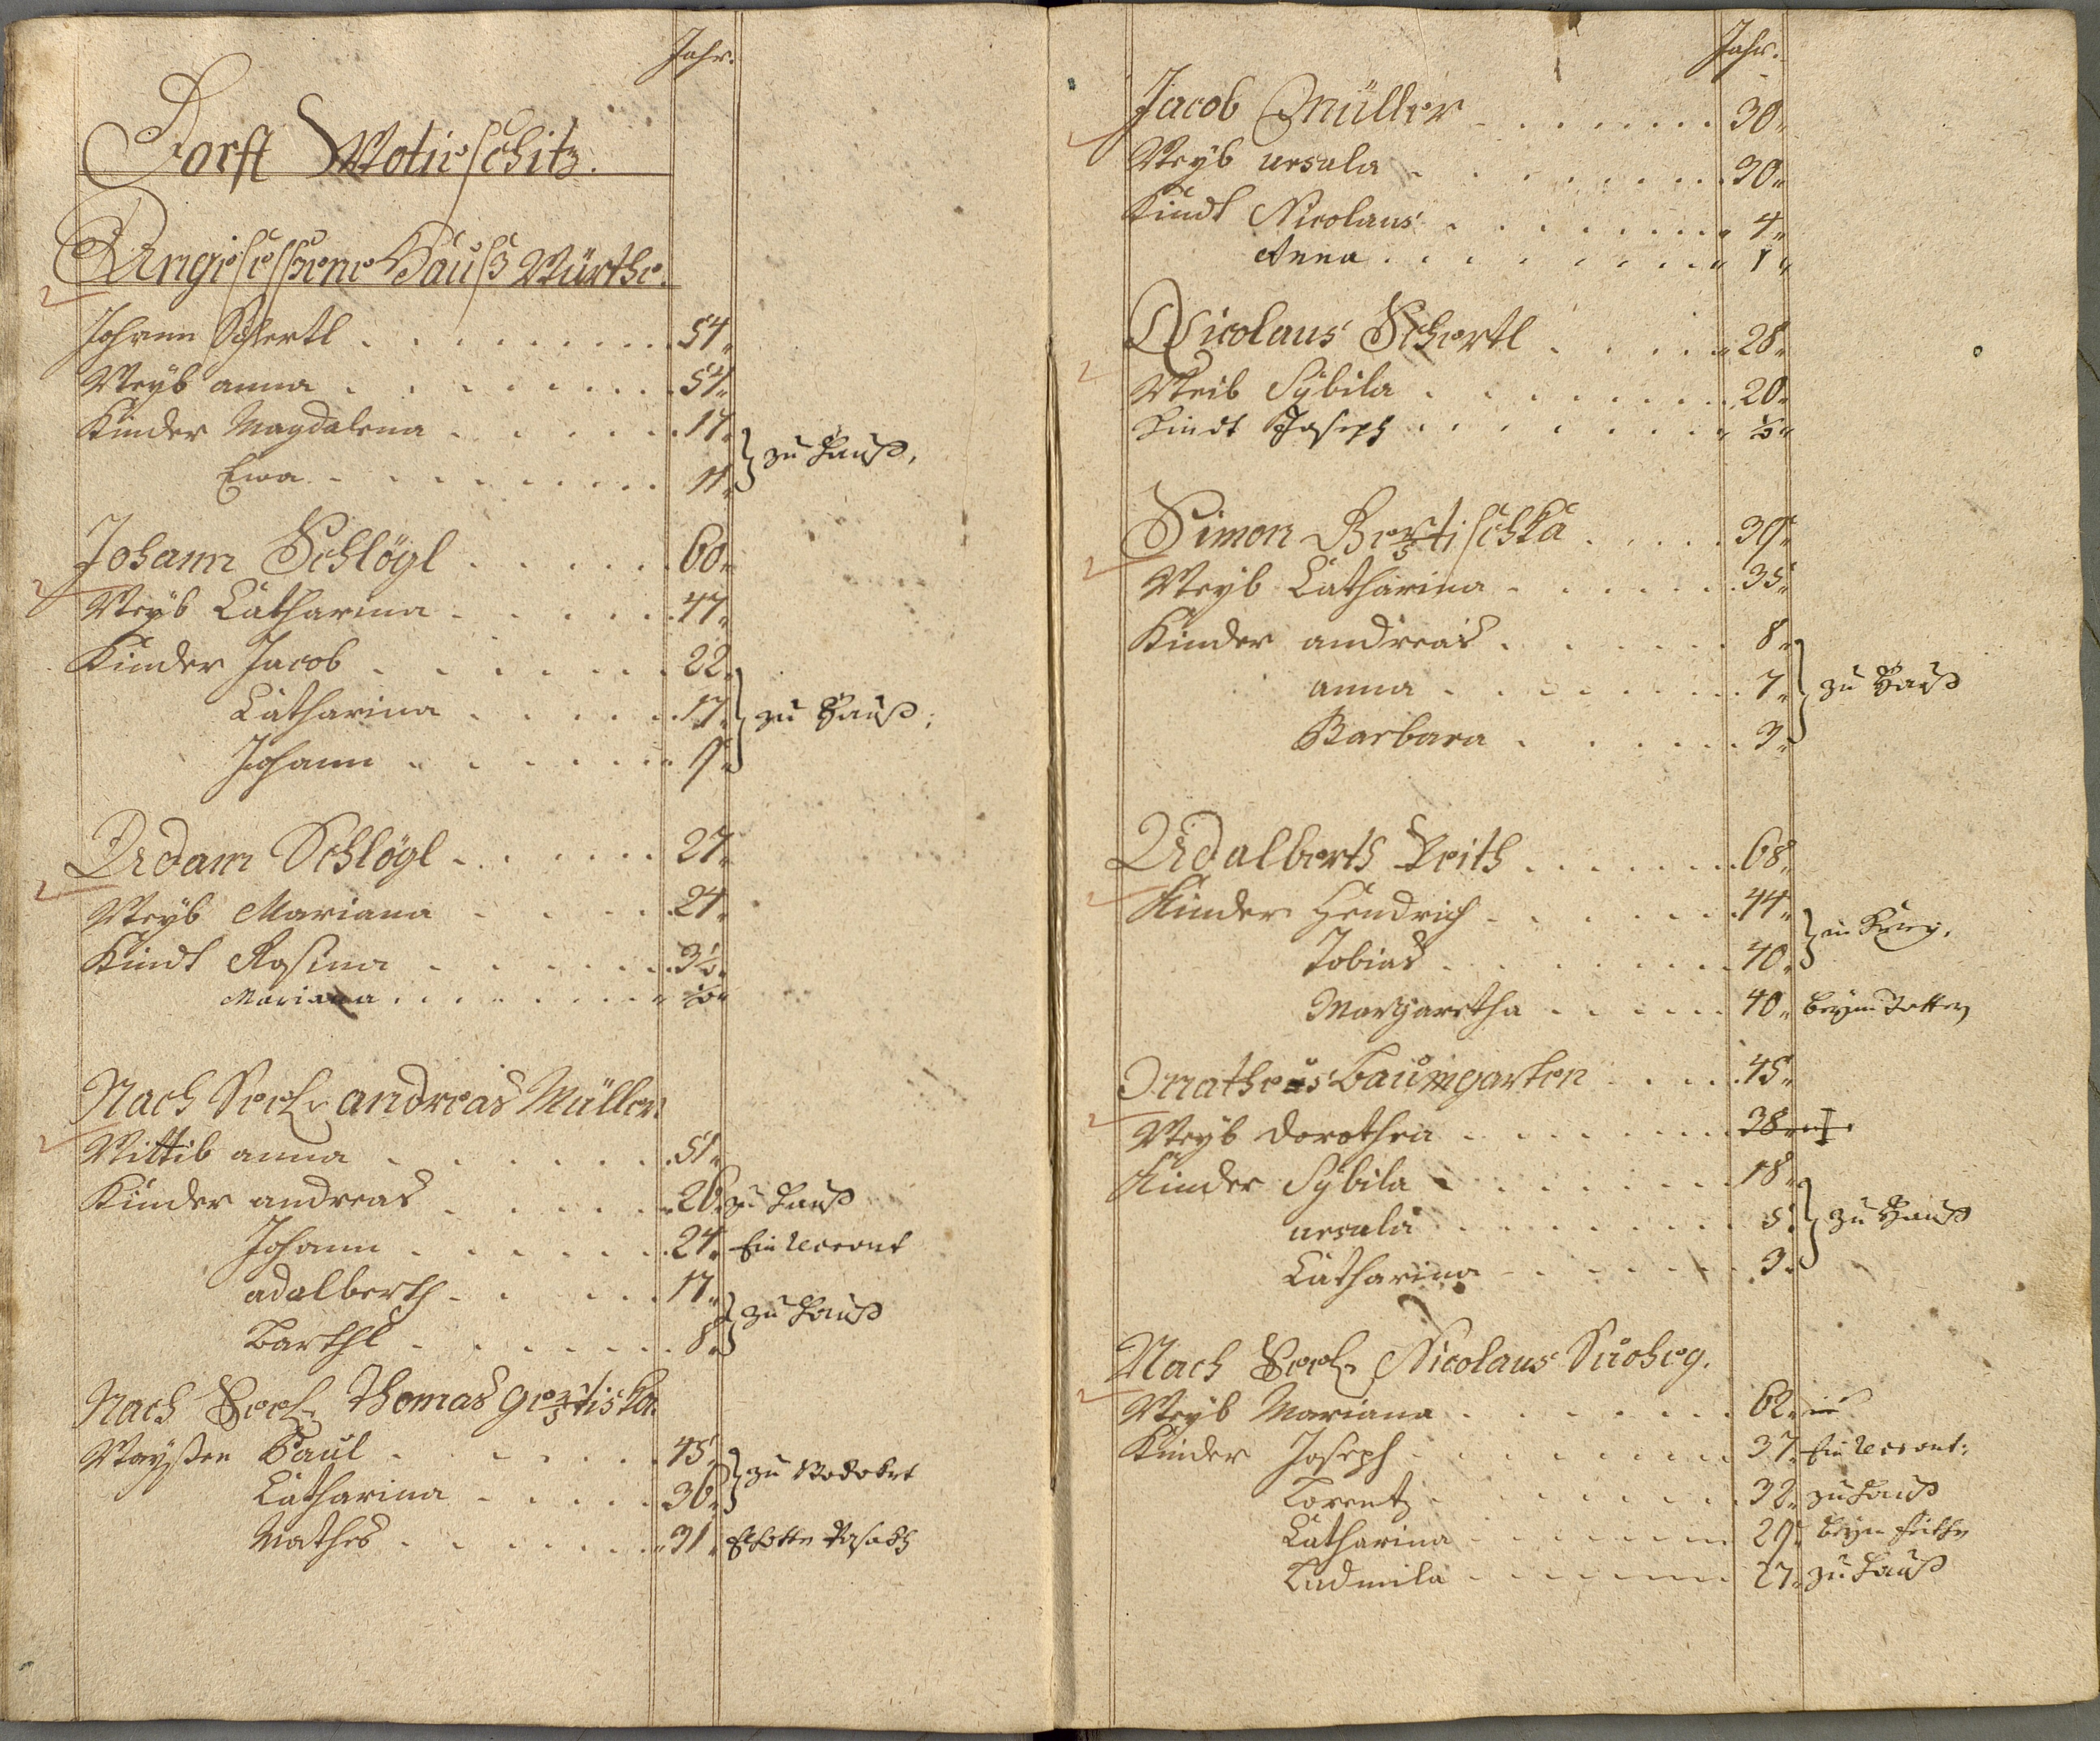 Jahr.
Dorff Wotieschitz.
Angesessene Hauß Würthe.
Johann Schertl 54
Weyb anna 54
Kinder Magdalena 17 } zu Hauß,
Ewa 11
Johann Schlögl 60
Weyb Catharina 47
Kinder Jacob 22
Catharina 17 } zu Hauß,
Johann 9
Adam Schlögl 27
Weyb Mariana 24
Kindt Rosina 3½
Mariana ½
Nach Seel. andreas Müller
Wittib anna 51
Kinder andreas 26 zu Hauß
Johann 24
adalberth 17
Barthl 8 } zu Hauß
Nach Seel. Thomas
Waysen Paul 45
Catharina 36
Mathes 31
Jahr.
Jacob Müller 30
Weyb ursula 30
Kindt Nicolaus 4
Anna 1
Nicolaus Schertl 28
Weib Sybila 20
Kindt Joseph ½
Simon 39
Weyb Catharina 35
Kinder andreas 8
anna 7 } zu Hauß
Barbara 3
Adalberth Veith 68
Kinder Hendrich 44
Tobias 40
Margaretha 40 beym
Matheus Baumgarten 45
Weyb Dorothea 38
Kinder Sybila 18
ursula 5 } zu Hauß
Catharina 3
Nach Seel. Nicolaus
Weyb Mariana 62
Kinder Joseph 37
Lorentz 32 zu Hauß
Catharina 29 beym
Ludmila 27 zu Hauß